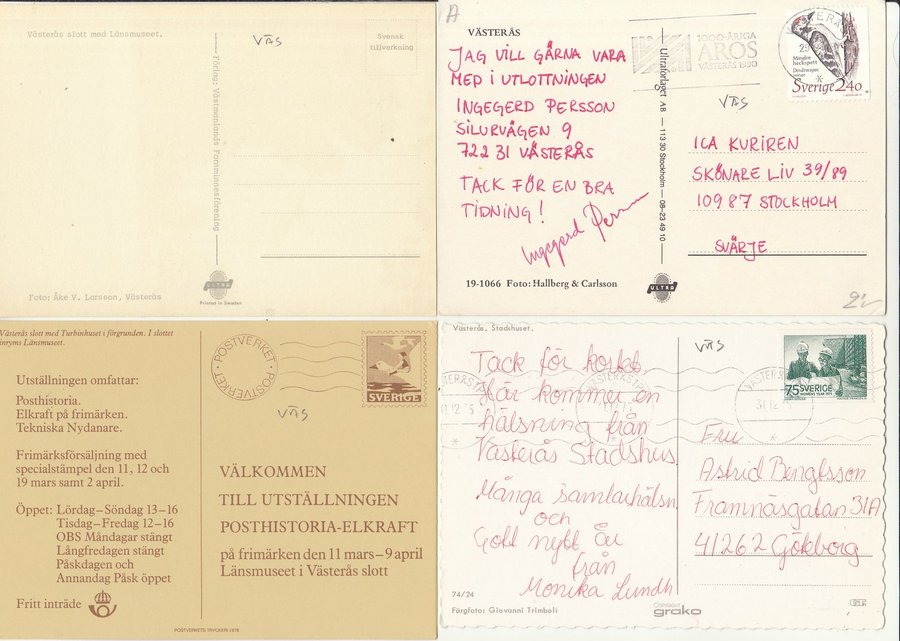 Västerås slott med Länsmuseet.
VÄS
Svensk
tillverkning
Förlag: Västmanlands Fornminnesförening
Foto: Åke V. Larsson, Västerås
ULTRA
Printed in Sweden
A
VÄSTERÅS
JAG VILL GÄRNA VARA
MED I UTLOTTNINGEN
INGEGERD PERSSON
SILURVÄGEN 9
722 31 VÄSTERÅS
TACK FÖR EN BRA
TIDNING!
Ingegerd Persson
19-1066 Foto: Hallberg & Carlsson
Ultraförlaget AB — 113 30 Stockholm — 08-23 49 10
ULTRA
1000-ÅRIGA
AROS
VÄSTERÅS 1990
VÄSTERÅS
Mindre
hackspett
Sverige 240
VÄS
ICA KURIREN
SKÖNARE LIV 39/89
10987 STOCKHOLM
SVÄRJE
2:-
Västerås slott med Turbinhuset i förgrunden. I slottet
inryms Länsmuseet.
Utställningen omfattar:
Posthistoria.
Elkraft på frimärken.
Tekniska Nydanare.
Frimärksförsäljning med
specialstämpel den 11, 12 och
19 mars samt 2 april.
Öppet: Lördag–Söndag 13–16
Tisdag–Fredag 12–16
OBS Måndagar stängt
Långfredagen stängt
Påskdagen och
Annandag Påsk öppet
Fritt inträde
POSTVERKET · POSTVERKET ·
SVERIGE
VÄS
VÄLKOMMEN
TILL UTSTÄLLNINGEN
POSTHISTORIA-ELKRAFT
på frimärken den 11 mars–9 april
Länsmuseet i Västerås slott
POSTVERKETS TRYCKERI 1978
Västerås, Stadshuset.
VÄS
Tack för kortet.
Här kommer en
hälsning från
Västerås Stadshus.
Många samlarhälsn.
och
Gott nytt år
från
Monika Lundh
75 SVERIGE
WOMEN'S YEAR 1975
VÄSTERÅS
31.12.75
Fru
Astrid Bengtsson
Framnäsgatan 31A
41262 Göteborg
74/24
Färgfoto: Giovanni Trimboli
Copyright
grako